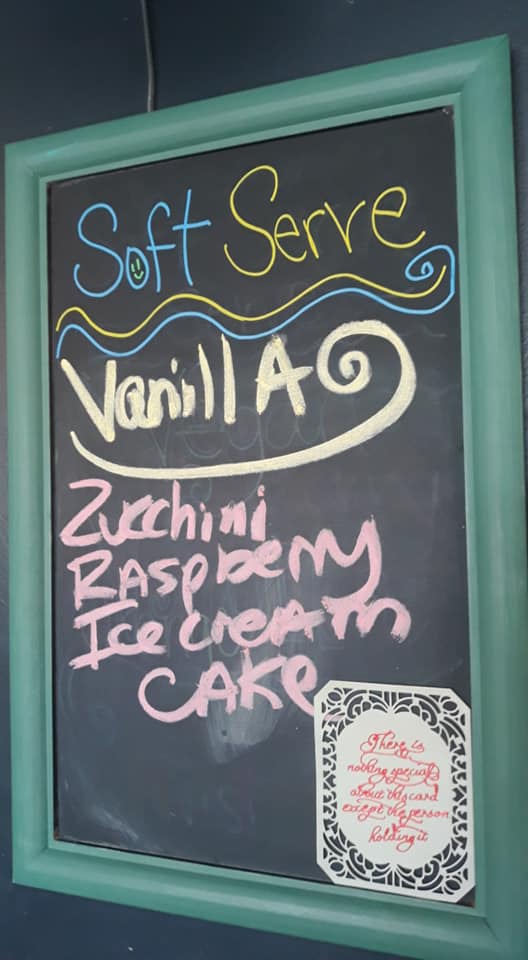 Soft Serve
VanillA
Zucchini
RAspberry
Ice creAm
CAke
There is
nothing special
about this card
except the person
holding it